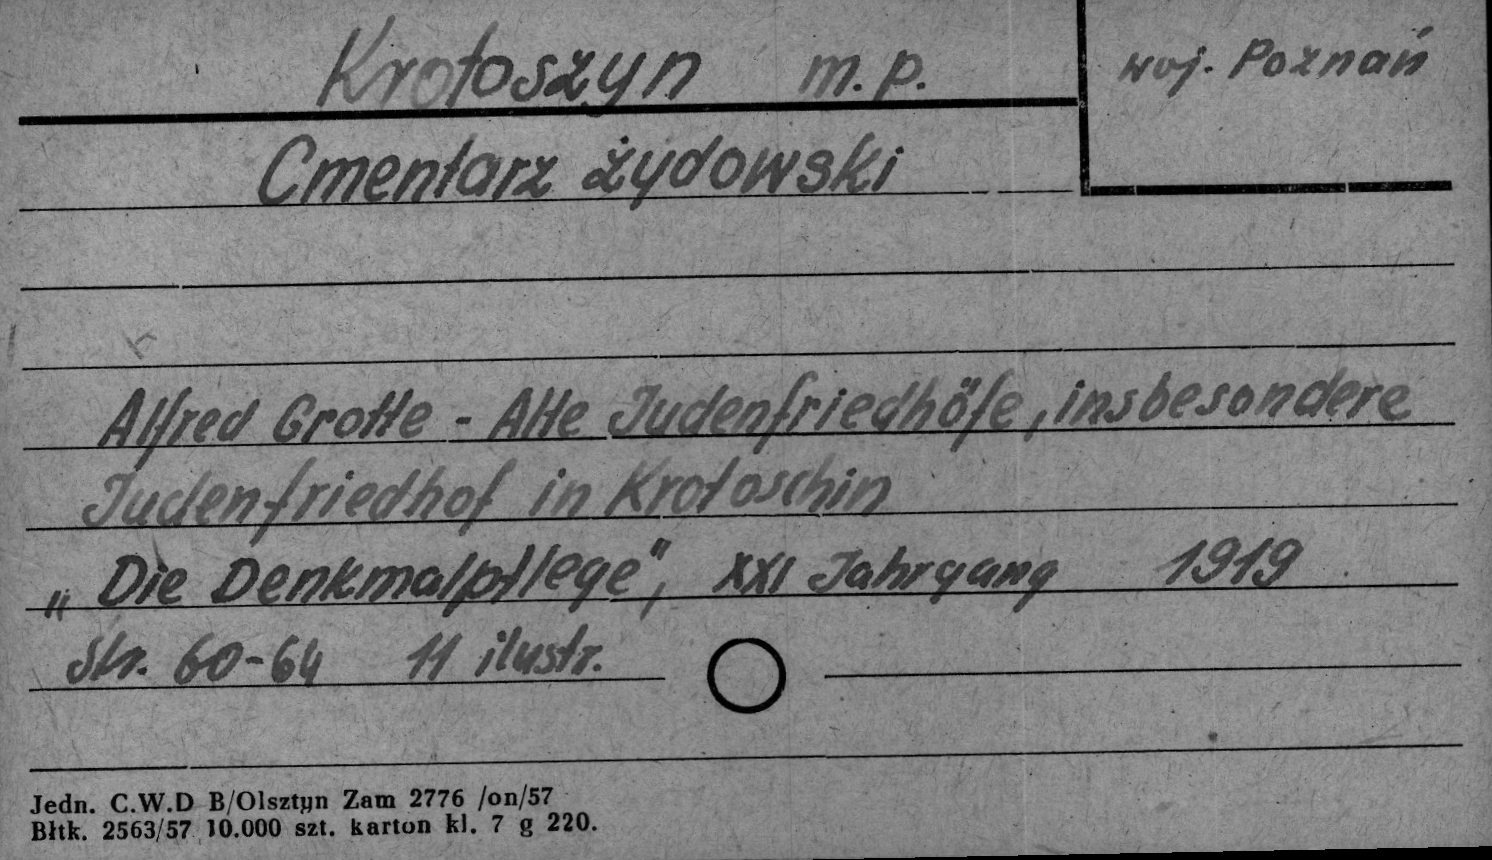 Krotoszyn m.p.
woj. Poznań
Cmentarz żydowski
Alfred Grotte - Alte Judenfriedhöfe, insbesondere
Judenfriedhof in Krotoschin
„Die Denkmalpflege”, XXI Jahrgang 1919
Str. 60-64 11 ilustr.
Jedn. C.W.D B/Olsztyn Zam 2776 /on/57
Błtk. 2563/57 10.000 szt. karton kl. 7 g 220.